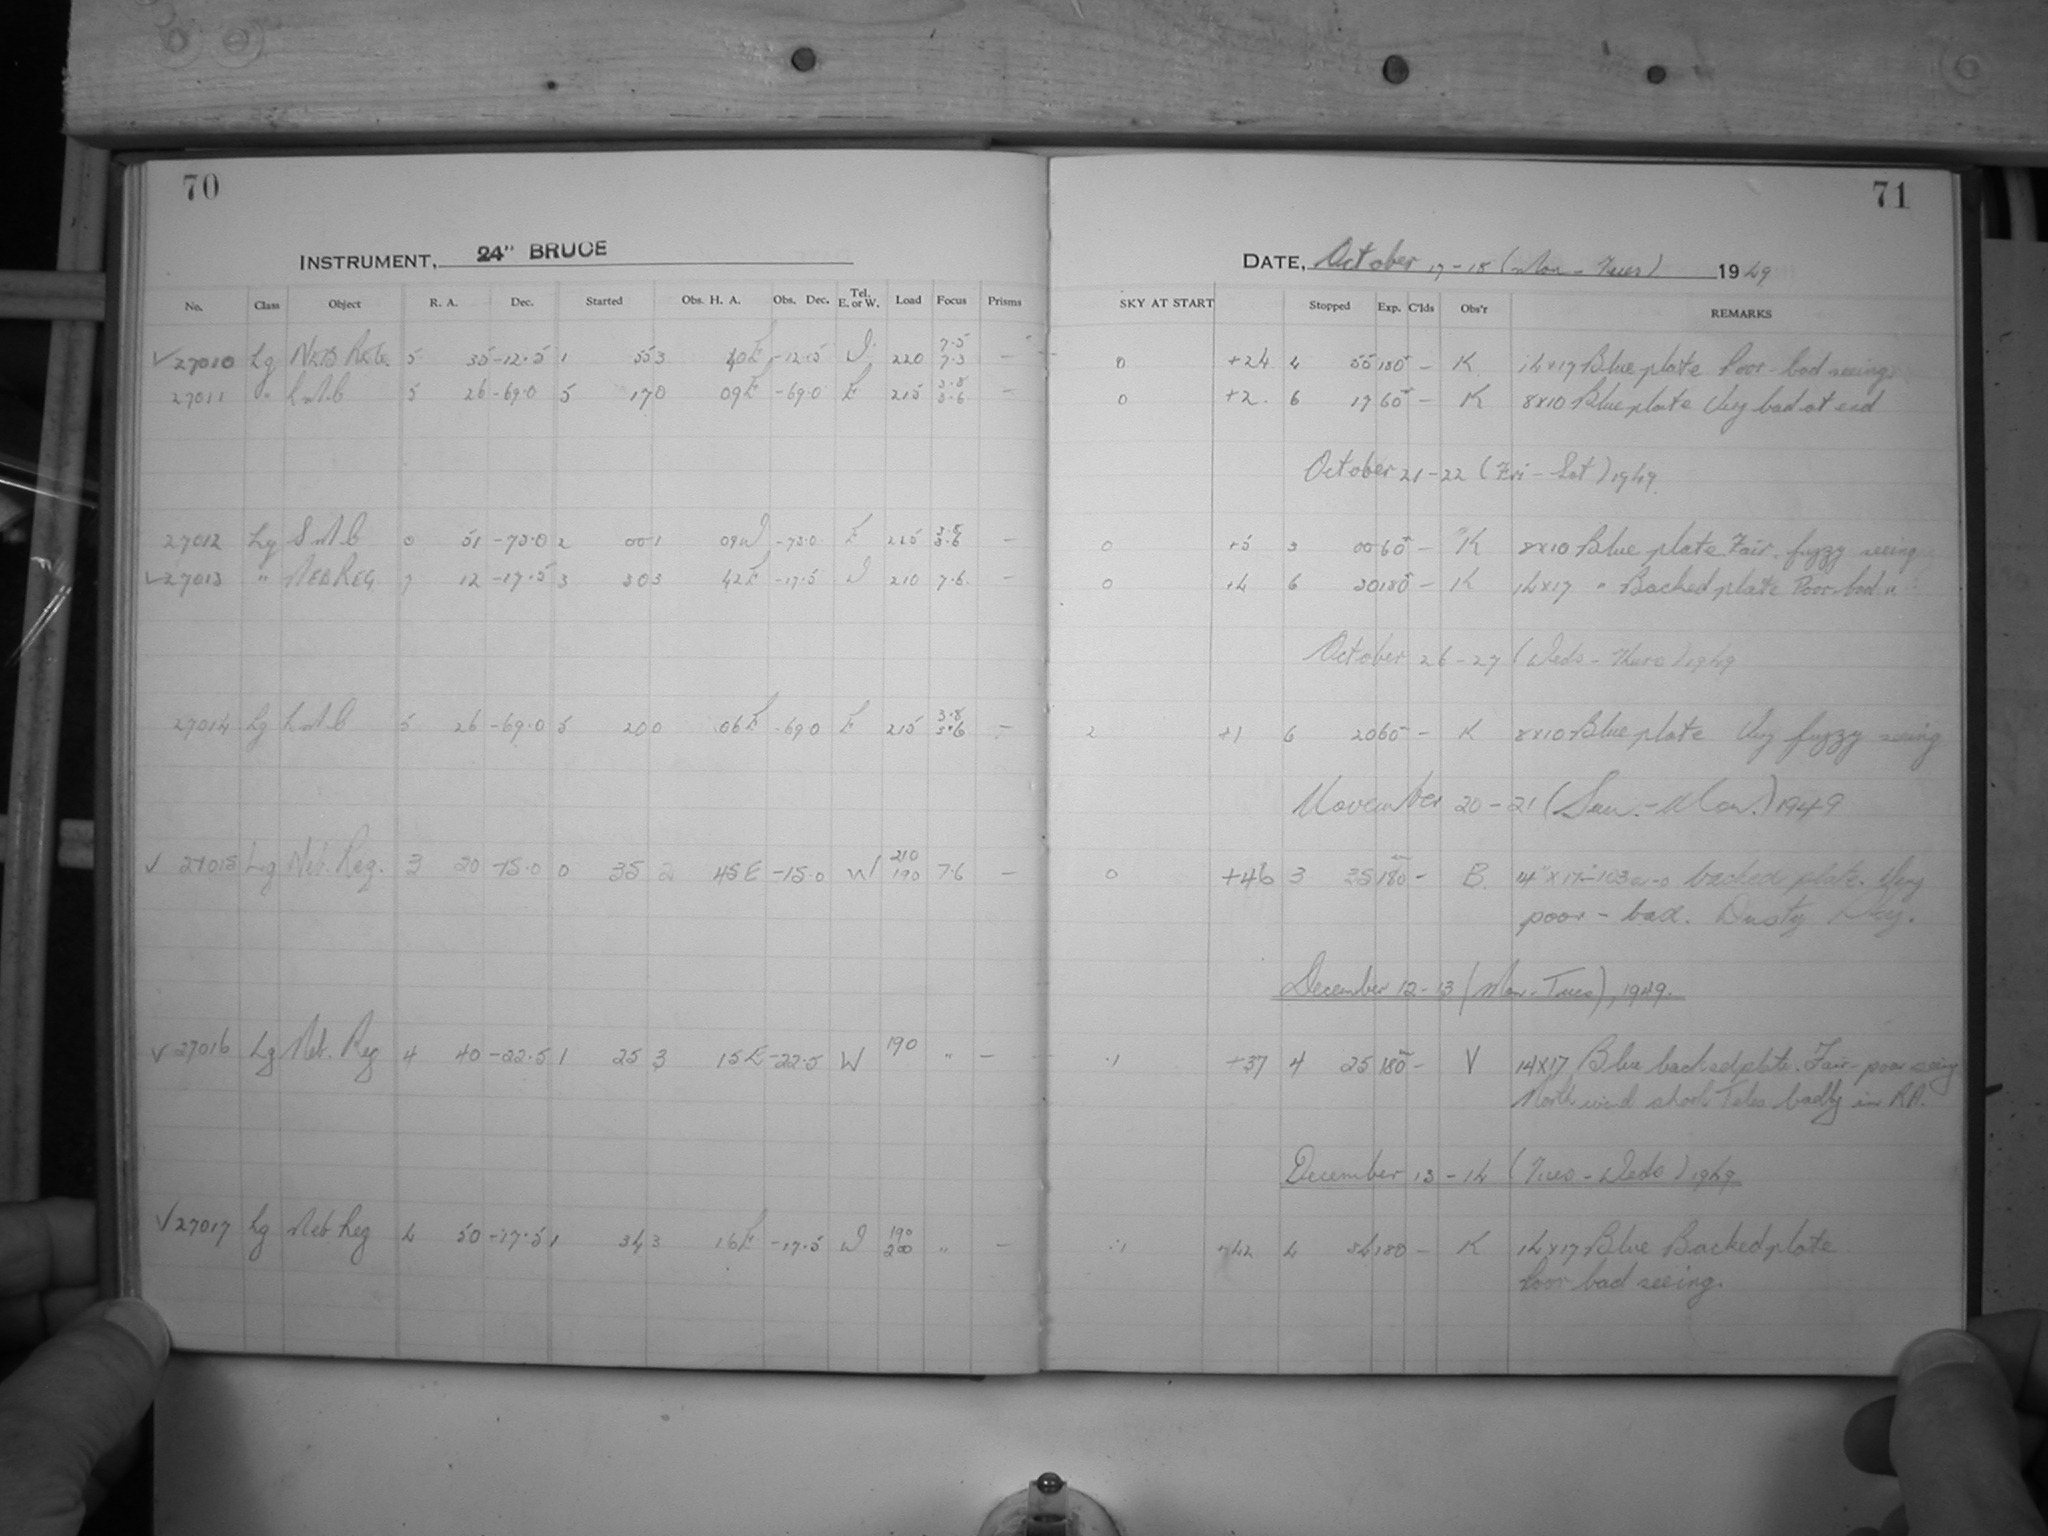 70
INSTRUMENT, 24" BRUCE
No. Class Object R. A. Dec. Started Obs. H. A. Obs. Dec. Tel. E. or W. Load Focus Prisms
√27010 Lg Neb Reg. 5 35 -12.5 1 55 3 40E -12.5 W 220 7.5 7.3 —
27011 " LMC 5 26 -69.0 5 17 0 09E -69.0 E 215 3.8 3.6 —
27012 Lg SMC 0 51 -73.0 2 00 1 09W -73.0 E 215 3.8 3.6 —
√27013 " NEB REG. 7 12 -17.5 3 30 3 42E -17.5 W 210 7.6 —
27014 Lg LMC 5 26 -69.0 5 20 0 06E -69.0 E 215 3.8 3.6 —
√ 27015 Lg Neb. Reg. 3 20 -15.0 0 35 2 45E -15.0 W 210 190 7.6 —
√27016 Lg Neb. Reg 4 40 -22.5 1 25 3 15E -22.5 W 190 " —
√27017 Lg Neb Reg 4 50 -17.5 1 34 3 16E -17.5 W 190 200 " —
71
DATE, October 17-18 (Mon - Tues) 1949
SKY AT START Stopped Exp. C'lds Obs'r REMARKS
0 +24 4 55 180 — K 14x17 Blue plate Poor - bad seeing.
0 +2. 6 17 60 — K 8x10 Blue plate Very bad at end
October 21-22 (Fri - Sat) 1949
0 +5 3 00 60 — K 8x10 Blue plate Fair. fuzzy seeing
0 +4 6 30 180 — K 14x17 " Backed plate Poor-bad "
October 26-27 (Weds - Thurs) 1949
2 +1 6 20 60 — K 8x10 Blue plate Very fuzzy seeing
November 20-21 (Sun. - Mon.) 1949
0 +46 3 35 180 — B. 14"x17" 103a-O backed plate. Very
poor - bad. Dusty Sky.
December 12-13 (Mon - Tues), 1949.
.1 +37 4 25 180 — V 14x17 Blue backed plate. Fair - poor seeing
North wind shook Teles badly in RA.
December 13-14 (Tues - Weds) 1949
.1 +42 4 34 180 — K 14x17 Blue Backed plate
Poor bad seeing.